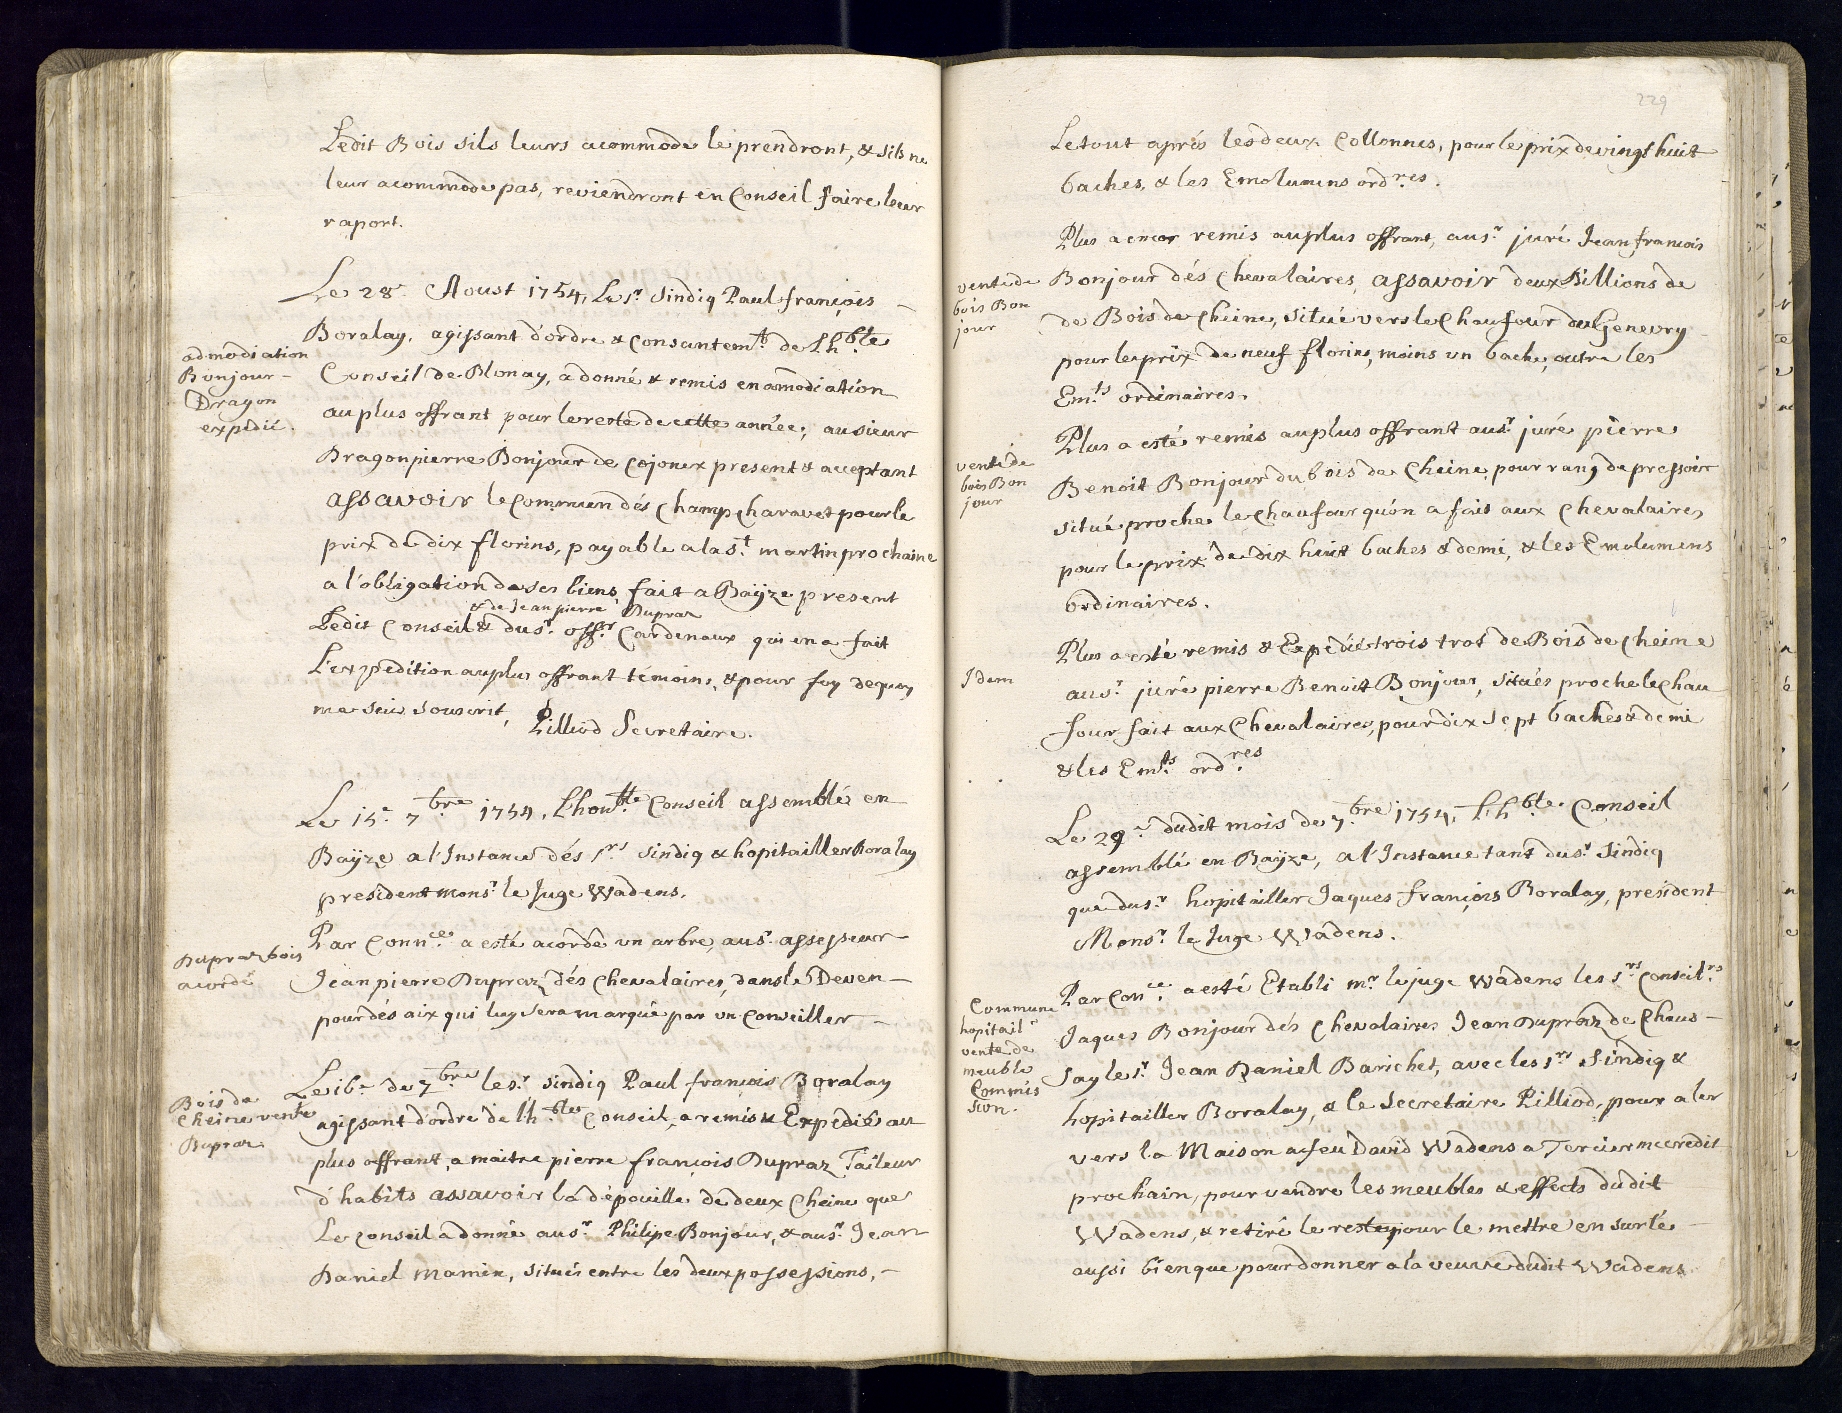 Ledit Bois sils leurs acommode le prendront, & sils ne
leur acommode pas, reviendront en Conseil faire leur
raport.
Le 28e. Aoust 1754, Le Sr. Sindiq Paul françois
Boralay, agissant d'ordre & Consantemt. de Lhble
admodiation
Bonjour
Dragon
expedié.
Conseil de Blonay, a donné & remis en amodiation
au plus offrant pour le reste de cette année, au sieur
Dragon pierre Bonjour de Cojonex present & acceptant
assavoir le Commun dés Champ Charavet pour le
prix de dix florins, payable a la St. martin prochaine
a l'obligation de ses biens, fait a Bäyze present
& de Jean pierre Dupraz
Ledit Conseil & du Sr. offr. Cardenaux qui en a fait
L'expedition au plus offrant témoins, & pour foy de quoy
me suis souscrit, Pilliod Secretaire.
Le 15e. 7bre 1754, Lhonble Conseil assemblé en
Bäyze a l'Instance dés Srs Sindiq & hopitailler Boralay
president monsr. le Juge Wadens.
Dupraz bois
acordé
Par Connce. a esté acordé un arbre, au Sr. assesseur
Jean pierre Dupraz dés Chevalaires, dans le Deven
pour dés aix qui luy sera marqué par un Conseiller
Bois de
Cheine vente
Dupraz
Le 16e. de 7bre le Sr. Sindiq Paul francois Boralay
agissant d'ordre de Lhble Conseil, a remis & Expedié au
plus offrant, a maitre pierre françois Dupraz Taileur
d'habits assavoir la dépouille de deux Cheine que
Le Conseil a donné au Sr. Philipe Bonjour, & au Sr. Jean
Daniel mamin, situés entre les deux possessions,
229
Le tout aprés les deux Collonnes, pour le prix de vingt huit
baches, & les Emolumens ordres.
Plus a encor remis au plus offrant, au Sr. juré Jean francois
vente de
bois Bon
jour
Bonjour dés Chevalaires, assavoir deux Billions de
de Bois de Cheine, situé vers le Chaufour du Genevry
pour le prix de neuf florins, moins un bache, outre les
Emts. ordinaires.
Plus a esté remis au plus offrant au Sr. juré pierre
vente de
bois Bon
jour
Benoit Bonjour du bois de Cheine pour rang de pressoir
situé proche le Chaufour qu'on a fait aux Chevalaires
pour le prix de dix huit baches & demi, & les Emolumens
ordinaires.
Idem
Plus a esté remis & Expedié trois trot de Bois de Cheine
au Sr. juré pierre Benoit Bonjour, situés proche le Chau
four fait aux Chevalaires, pour dix sept baches & demi
& les Emts. ordres
Le 29e dudit mois de 7bre 1754, Lhble. Conseil
assemblé en Bäyze, a l'Instance tant du Sr. Sindiq
que du Sr. hopitailler Jaques françois Boralay, president
Monsr. le Juge Wadens.
Commune
hopitail
vente de
meuble
Commis
sion.
Par Conce. a esté Etabli mr. le juge Wadens les Srs Conseilrs
Jaques Bonjour dés Chevalaires Jean Dupraz de Chaus
Say le Sr. Jean Daniel Barichet, avec les Srs Sindiq &
hopitailler Boralay, & le Secretaire Pilliod, pour aler
vers la Maison a feu David Wadens a Tercier mecredit
prochain, pour vendre les meubles & effects dudit
Wadens, & retiré le reste pour le mettre en surté
aussi bien que pour donner a la veuve dudit Wadens